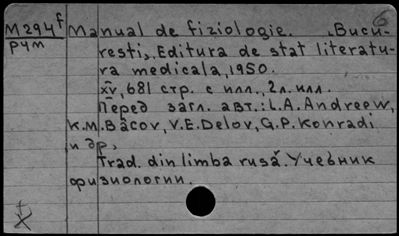 M294f Manual de fiziologie. Bucu- 6
РУМ resti, Editura de stat literatu-
ra medicala, 1950.
XV, 681 стр. с илл., 2 л. илл.
Перед загл. авт.: L.A. Andreew,
K.M. Bâcov, V.E. Delov, G.P. Konradi
и др.
Trad. din limba rusă. Учебник
физиологии.